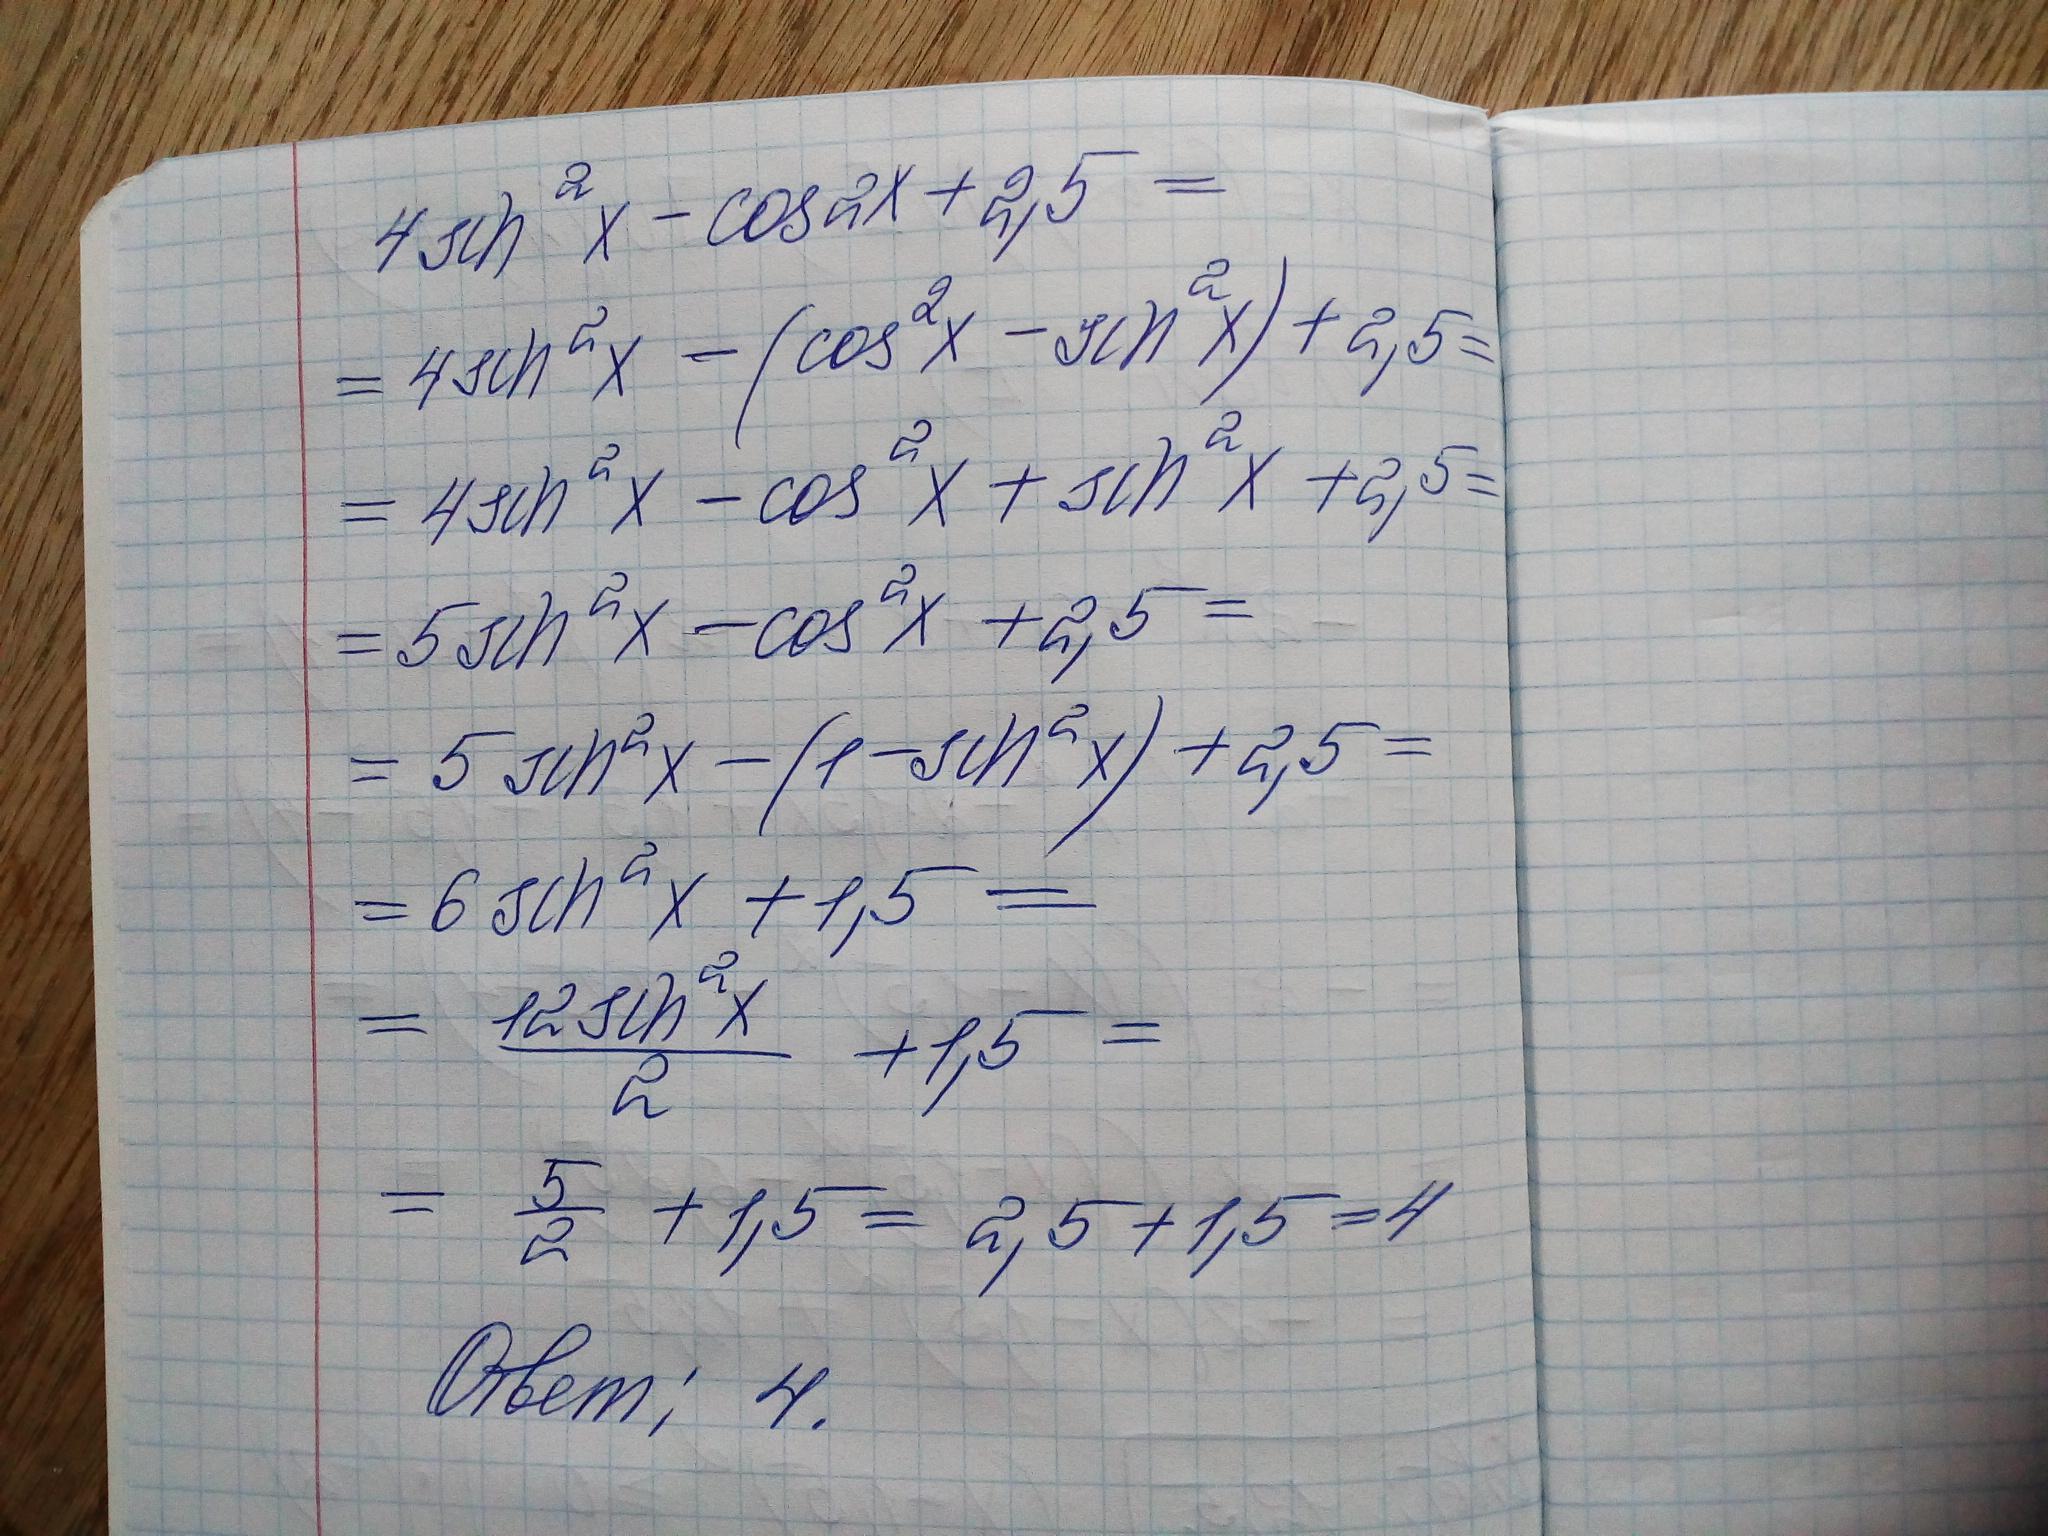 4 sin²x - cos2x + 2,5 =
= 4 sin²x - (cos²x - sin²x) + 2,5 =
= 4 sin²x - cos²x + sin²x + 2,5 =
= 5 sin²x - cos²x + 2,5 =
= 5 sin²x - (1 - sin²x) + 2,5 =
= 6 sin²x + 1,5 =
= 12 sin²x / 2 + 1,5 =
= 5/2 + 1,5 = 2,5 + 1,5 = 4
Ответ: 4.